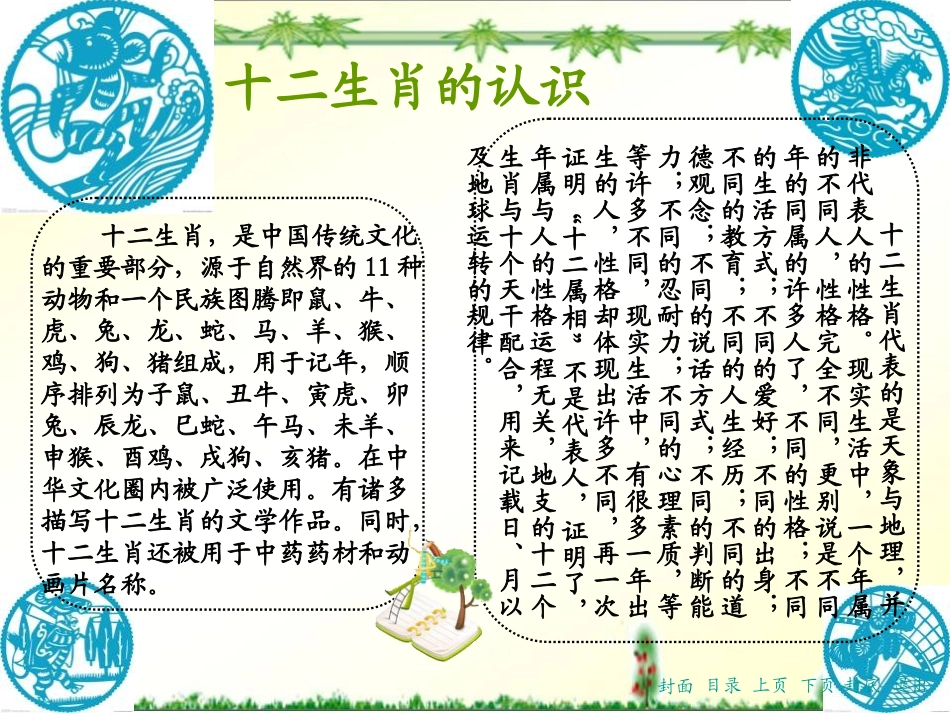 十二生肖的认识
十二生肖，是中国传统文化
的重要部分，源于自然界的 11 种
动物和一个民族图腾即鼠、牛、
虎、兔、龙、蛇、马、羊、猴、
鸡、狗、猪组成，用于记年，顺
序排列为子鼠、丑牛、寅虎、卯
兔、辰龙、巳蛇、午马、未羊、
申猴、酉鸡、戌狗、亥猪。在中
华文化圈内被广泛使用。有诸多
描写十二生肖的文学作品。同时，
十二生肖还被用于中药药材和动
画片名称。
十二生肖代表的是天象与地理，并
非代表人的性格。现实生活中，一个年属
的不同人，性格完全不同，更别说是不同
年的同属的许多人了，不同的性格；不同
的生活方式；不同的爱好；不同的出身；
不同的教育；不同的人生经历；不同的道
德观念；不同的说话方式；不同的判断能
力；不同的忍耐力；不同的心理素质，等
等许多不同，现实生活中，有很多一年出
生的人，性格却体现出许多不同，再一次
证明“十二属相”不是代表人，证明了，
年属与人的性格运程无关，地支的十二个
生肖与十个天干配合，用来记载日、月以
及地球运转的规律。
封面 目录 上页 下页